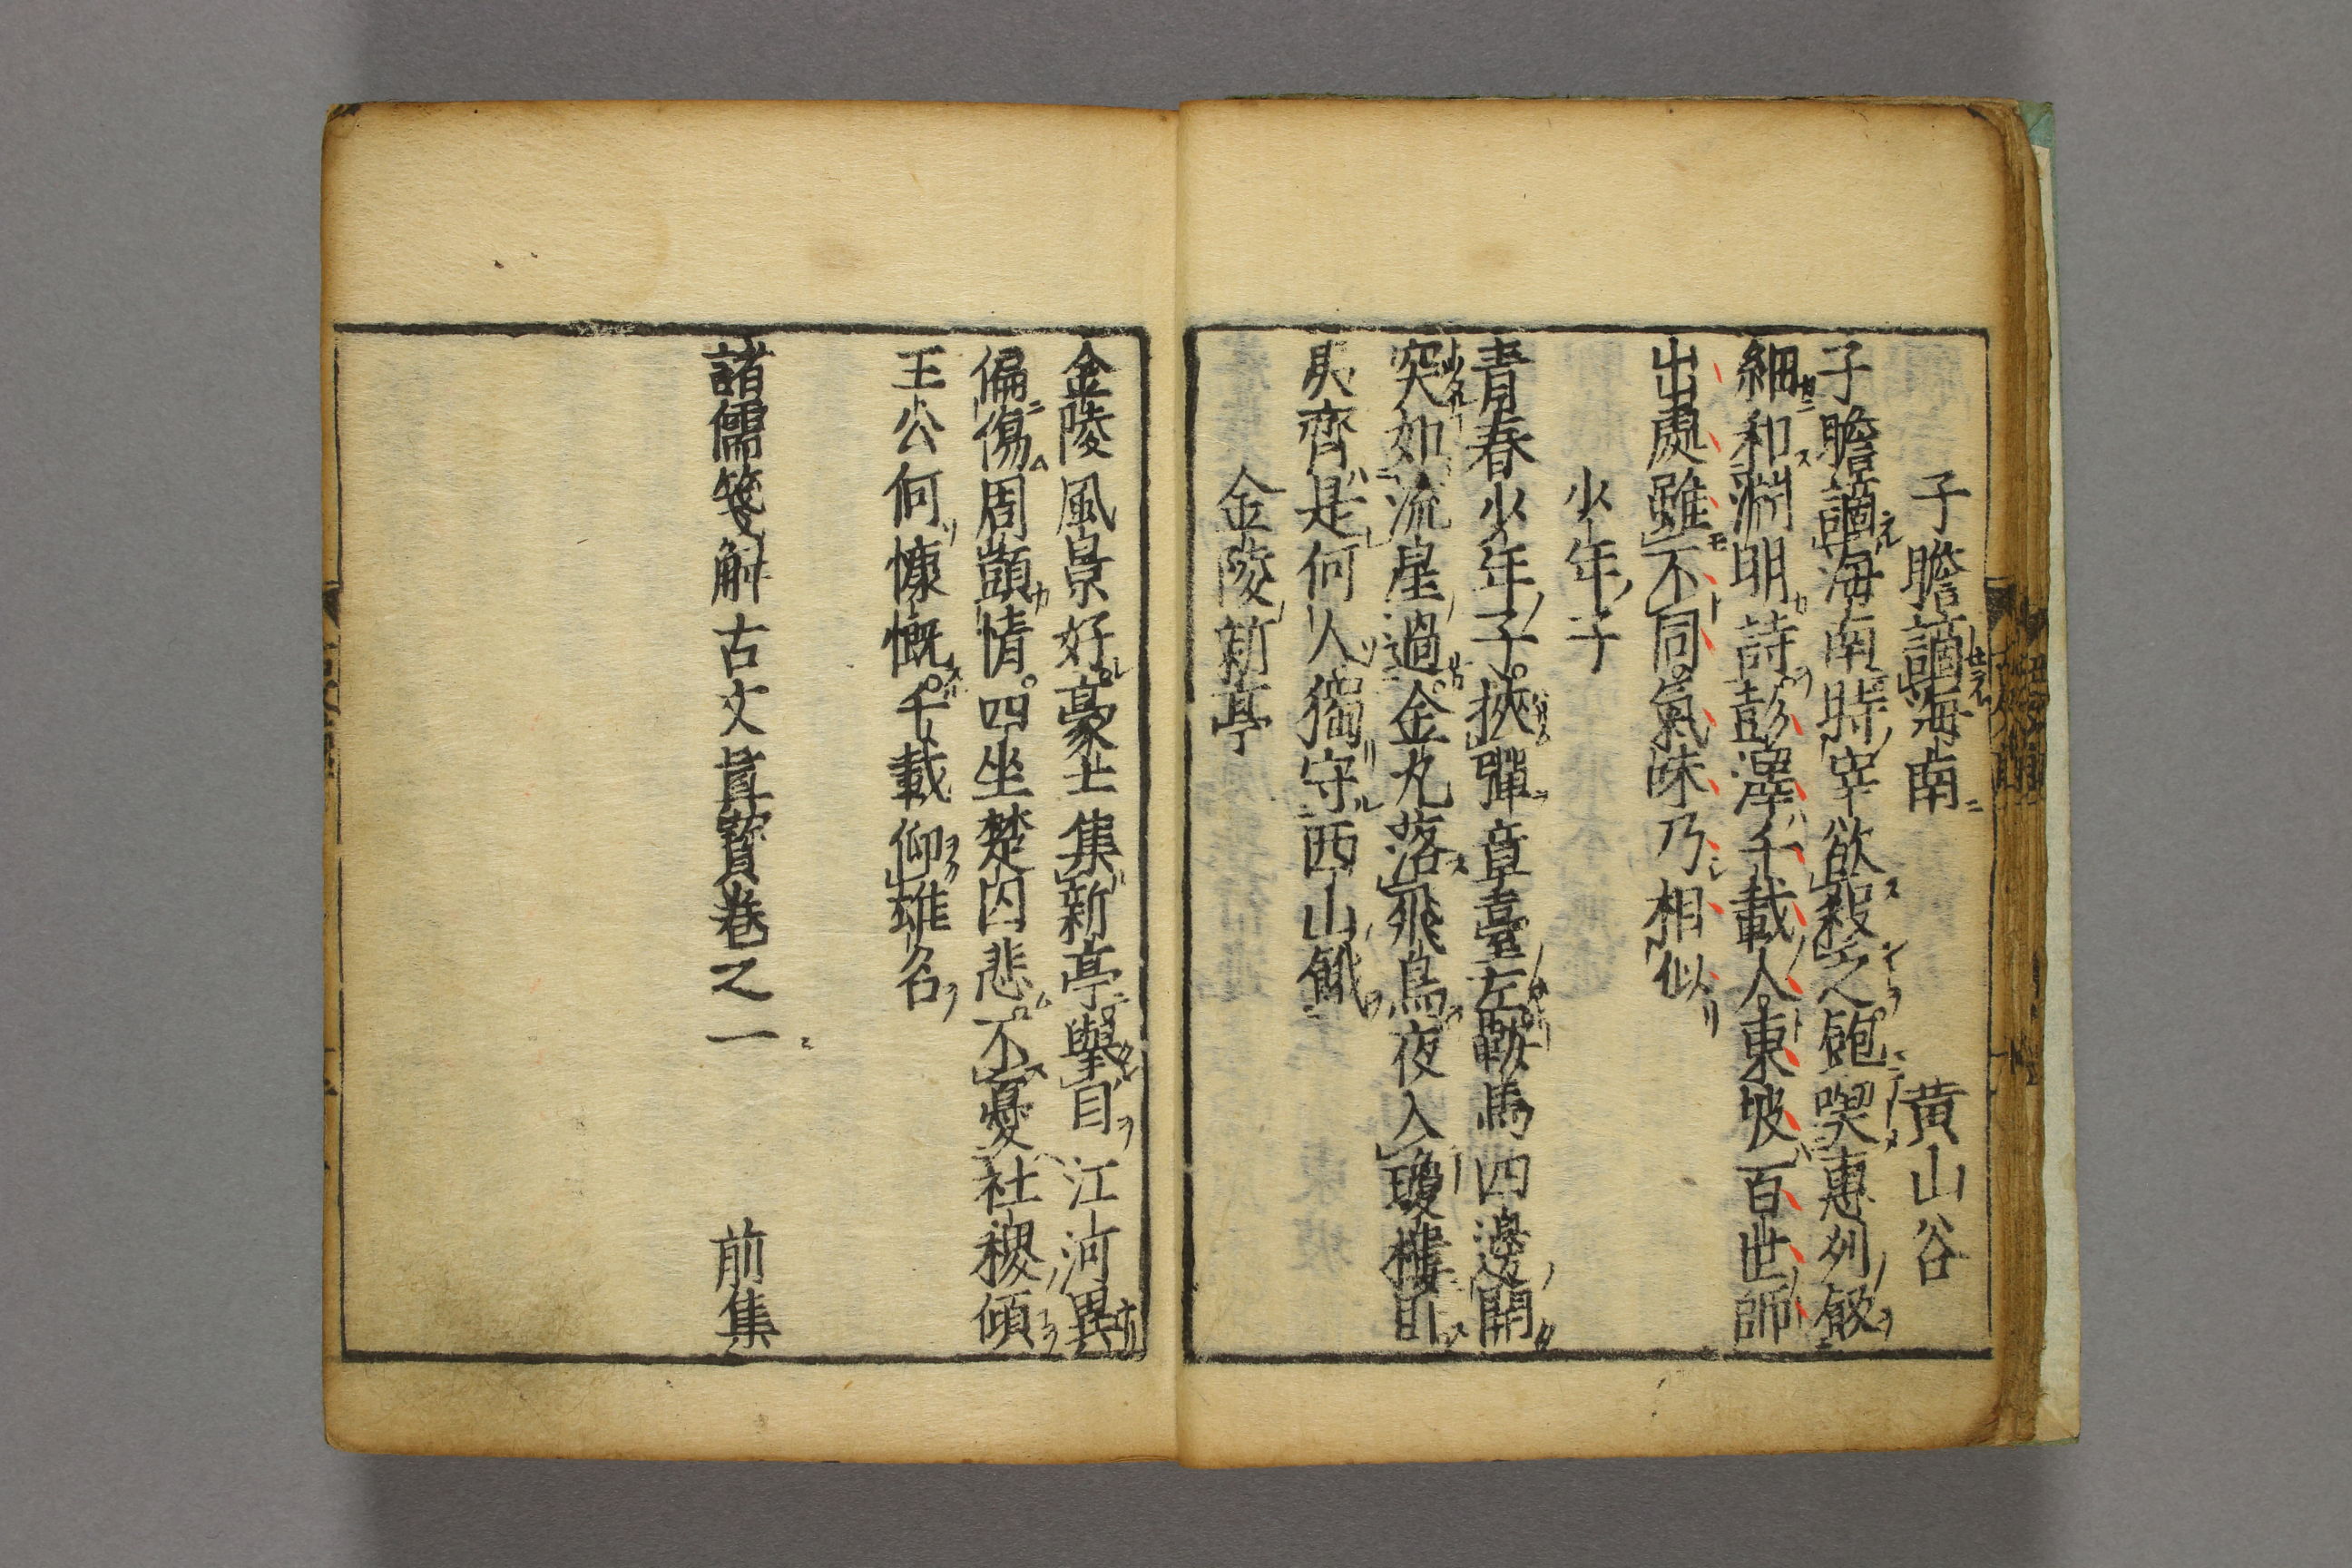 子瞻謫海南　黃山谷
子瞻謫海南時宰欲殺之飽喫惠州飯
細和淵明詩彭澤千載人東坡百世師
出處雖不同氣味乃相似
少年子
青春少年子挾彈章臺左鞍馬四邊開
突如流星過金丸落飛鳥夜入瓊樓臥
夷齊是何人獨守西山餓
金陵新亭
金陵風景好豪士集新亭舉目江河異
偏傷周顗情四坐楚囚悲不憂社稷傾
王公何慷慨千載仰雄名
諸儒箋解古文眞寳卷之一　前集